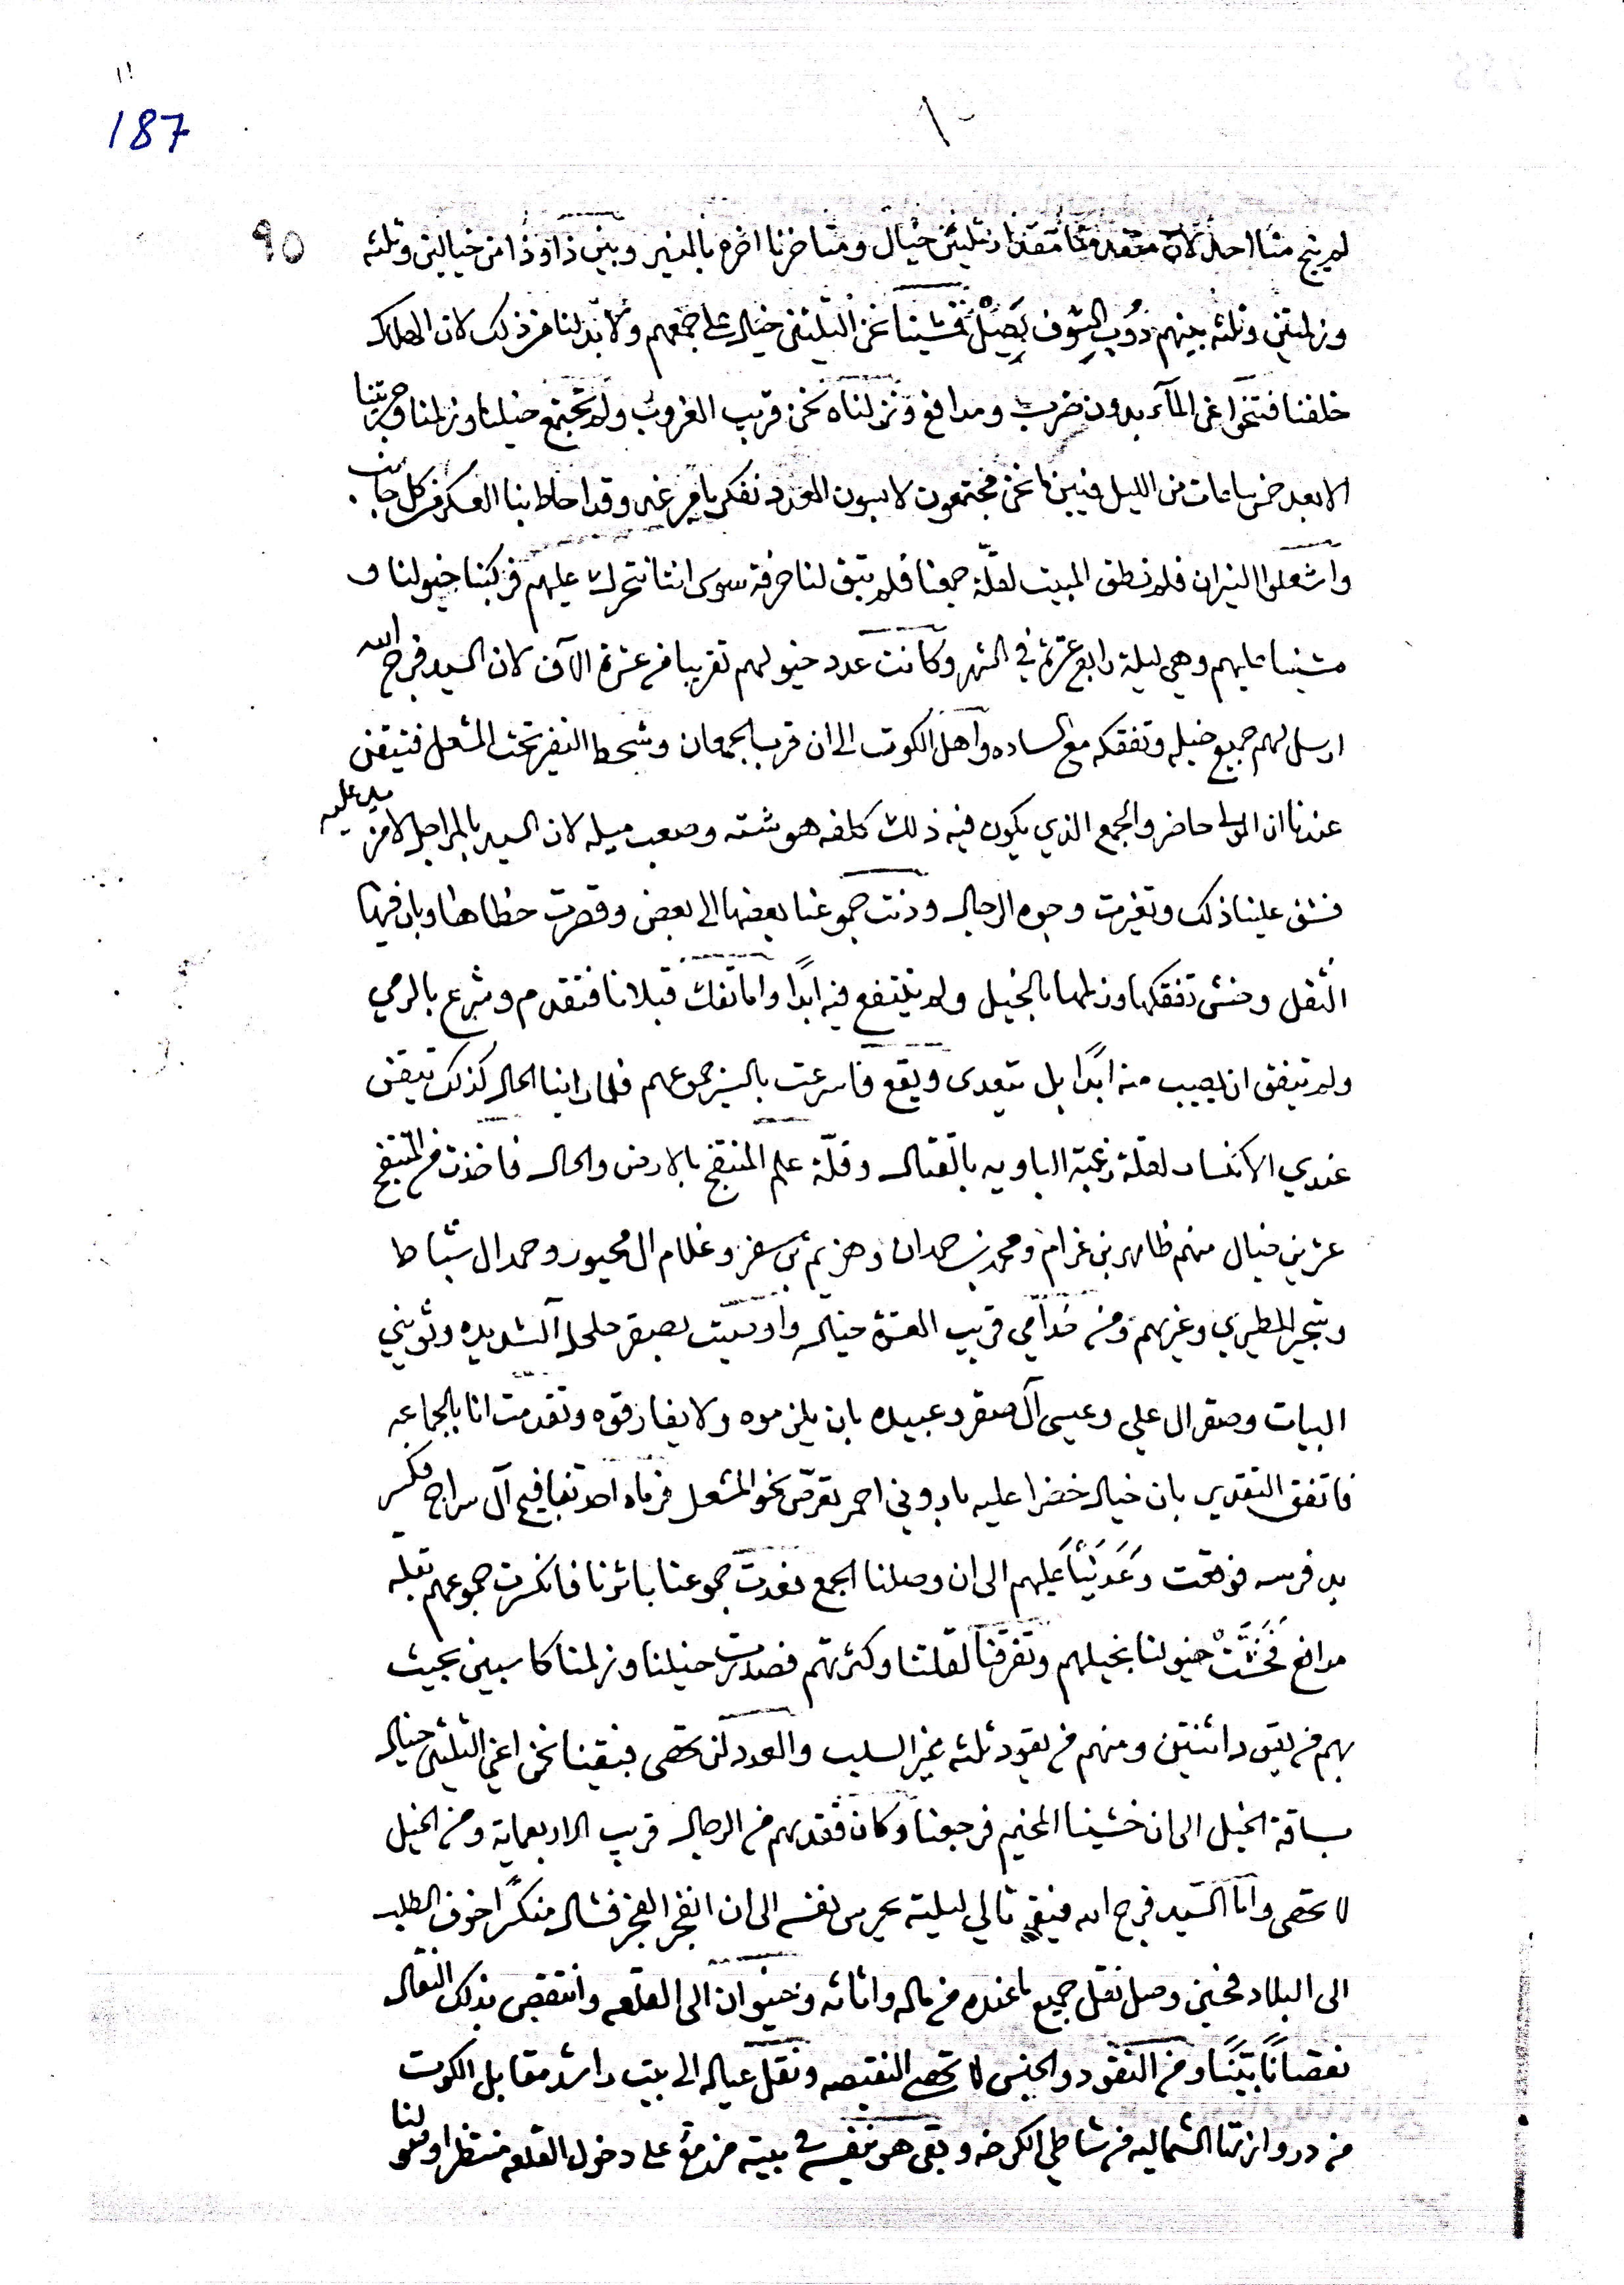 ١١
187
١٠
٩٥
لم ينج منا احد لان متقدمنا مقدار ثليثن خيال ومتاخرنا اخره بالمنير وبين ذا وذا من خيالين وثلثه
وزلمتين وثلثه بينهم دُوب الشوف يَصِلْ فمشينا نحن الثليثن خيال على جمعهم ولا بد لنا من ذلك لان الهلاك
خلفنا فتنحوا عن المآء بدون ضرب ومدافع ونزلناه نحن قريب الغروب ولم تجتمع خيلنا وزلمنا
الا بعد خمس ساعات من الليل فبين ما نحن مجتمعون لابسون العدد نفكر بامر غد وقد احاط بنا العسكر من كل جانب
واشعلوا النيران فلم نطق المبيت لقلّة جمعنا فلم تبق لنا حرفة سوى اننا نتحرك عليهم فركبنا خيولنا و
مشينا عليهم وهي ليلة رابع عشرة في الشهر وكانت عدد خيولهم تقريبا من عشرة الآف لان السيد فرج الله
ارسل لهم جميع خيله وتفقكه مع الساده واهل الكوت الى ان قرب الجمعان وشحط النفير تحت المشعل فتيقن
عندنا ان المولى حاضر والجمع الذي يكون فيه ذلك كلفه هوشته وصعب ميله لان السيد بالمراجل لا مزيد عليه
فشق علينا ذلك وتغيرت وجوه الرجال ودنت جموعنا بعضها الى بعض وقصرت خطاها وبان فيها
الثقل وخش تفقكها وزلمها بالخيل ولم ينتفع فيه ابدًا واما تفك قبلانا فتقدم وشرع بالرمي
ولم يتفق ان يصيب منه ابدًا بل يتعدى ويقع فاسرعت بالسير جموعهم فلما راينا الحال كذلك تيقن
عندي الانكسار لقلة رغبة الباويه بالقتال وقلّة علم المنتفج بالارض والحال فاخذت من المنتفج
عشرين خيال منهم ظاهر بن عزام ومحمد بن حمدان وهزيم بن سفر وغلام ال محيور وحمد ال شباط
المطيري وغيرهم ومن خدامي قريب العشرة خيال واوصيت بصقر حلحل آلشديده وثويني
البيات وصقر ال علي وعيسى آل صقر وعبيده بان يلزموه ولا يفارقوه وتقدمت انا بالجماعه
فاتفق التقدير بان خيال خضرا عليه بادوني احمر تعرّض نحو المشعل فرماه احد تفافيج آل سراج فكسر
يد فرسه فوقعت وَعَدَيْنَا عَليهم الى ان وصلنا الجمع فغدت جموعنا باثرنا فانكسرت جموعهم بقلة
مدافع فَخَشَّتْ خيولنا بخيلهم وتفرقنا لقلتنا وكثرتهم فصدرت خيلنا وزلمنا كاسبين بحيث
بهم من يقود اثنتين ومنهم من يقود ثلثه غير السلب والعدد لن تحصى فبقينا نحن اعني الثليثن خيال
بساقة الخيل الى ان خشينا المخيم فرجعنا وكان فقدهم من الرجال قريب الاربعماية ومن الخيل
لا تحصى واما السّيد فرج الله فبقى تالي ليلته يحرس نفسه الى ان انفجر الفجر فشال منكسرًا خوف الطلب
الى البلاد فحين وصل نقل جميع ما عنده من ماله واثاثه وخيوان الى القلعه وانتقص بذلك النقال
نقصانًا بَيّنًا ومن النقود والجنس لا تحصى النقيصه ونقل عياله الى بيت راشد مقابل الكوت
من دروازتنا الشماليه من شاطي الكرخه وبقى هو بنفسه في بيته على دخول القلعه منتظرا وصولنا